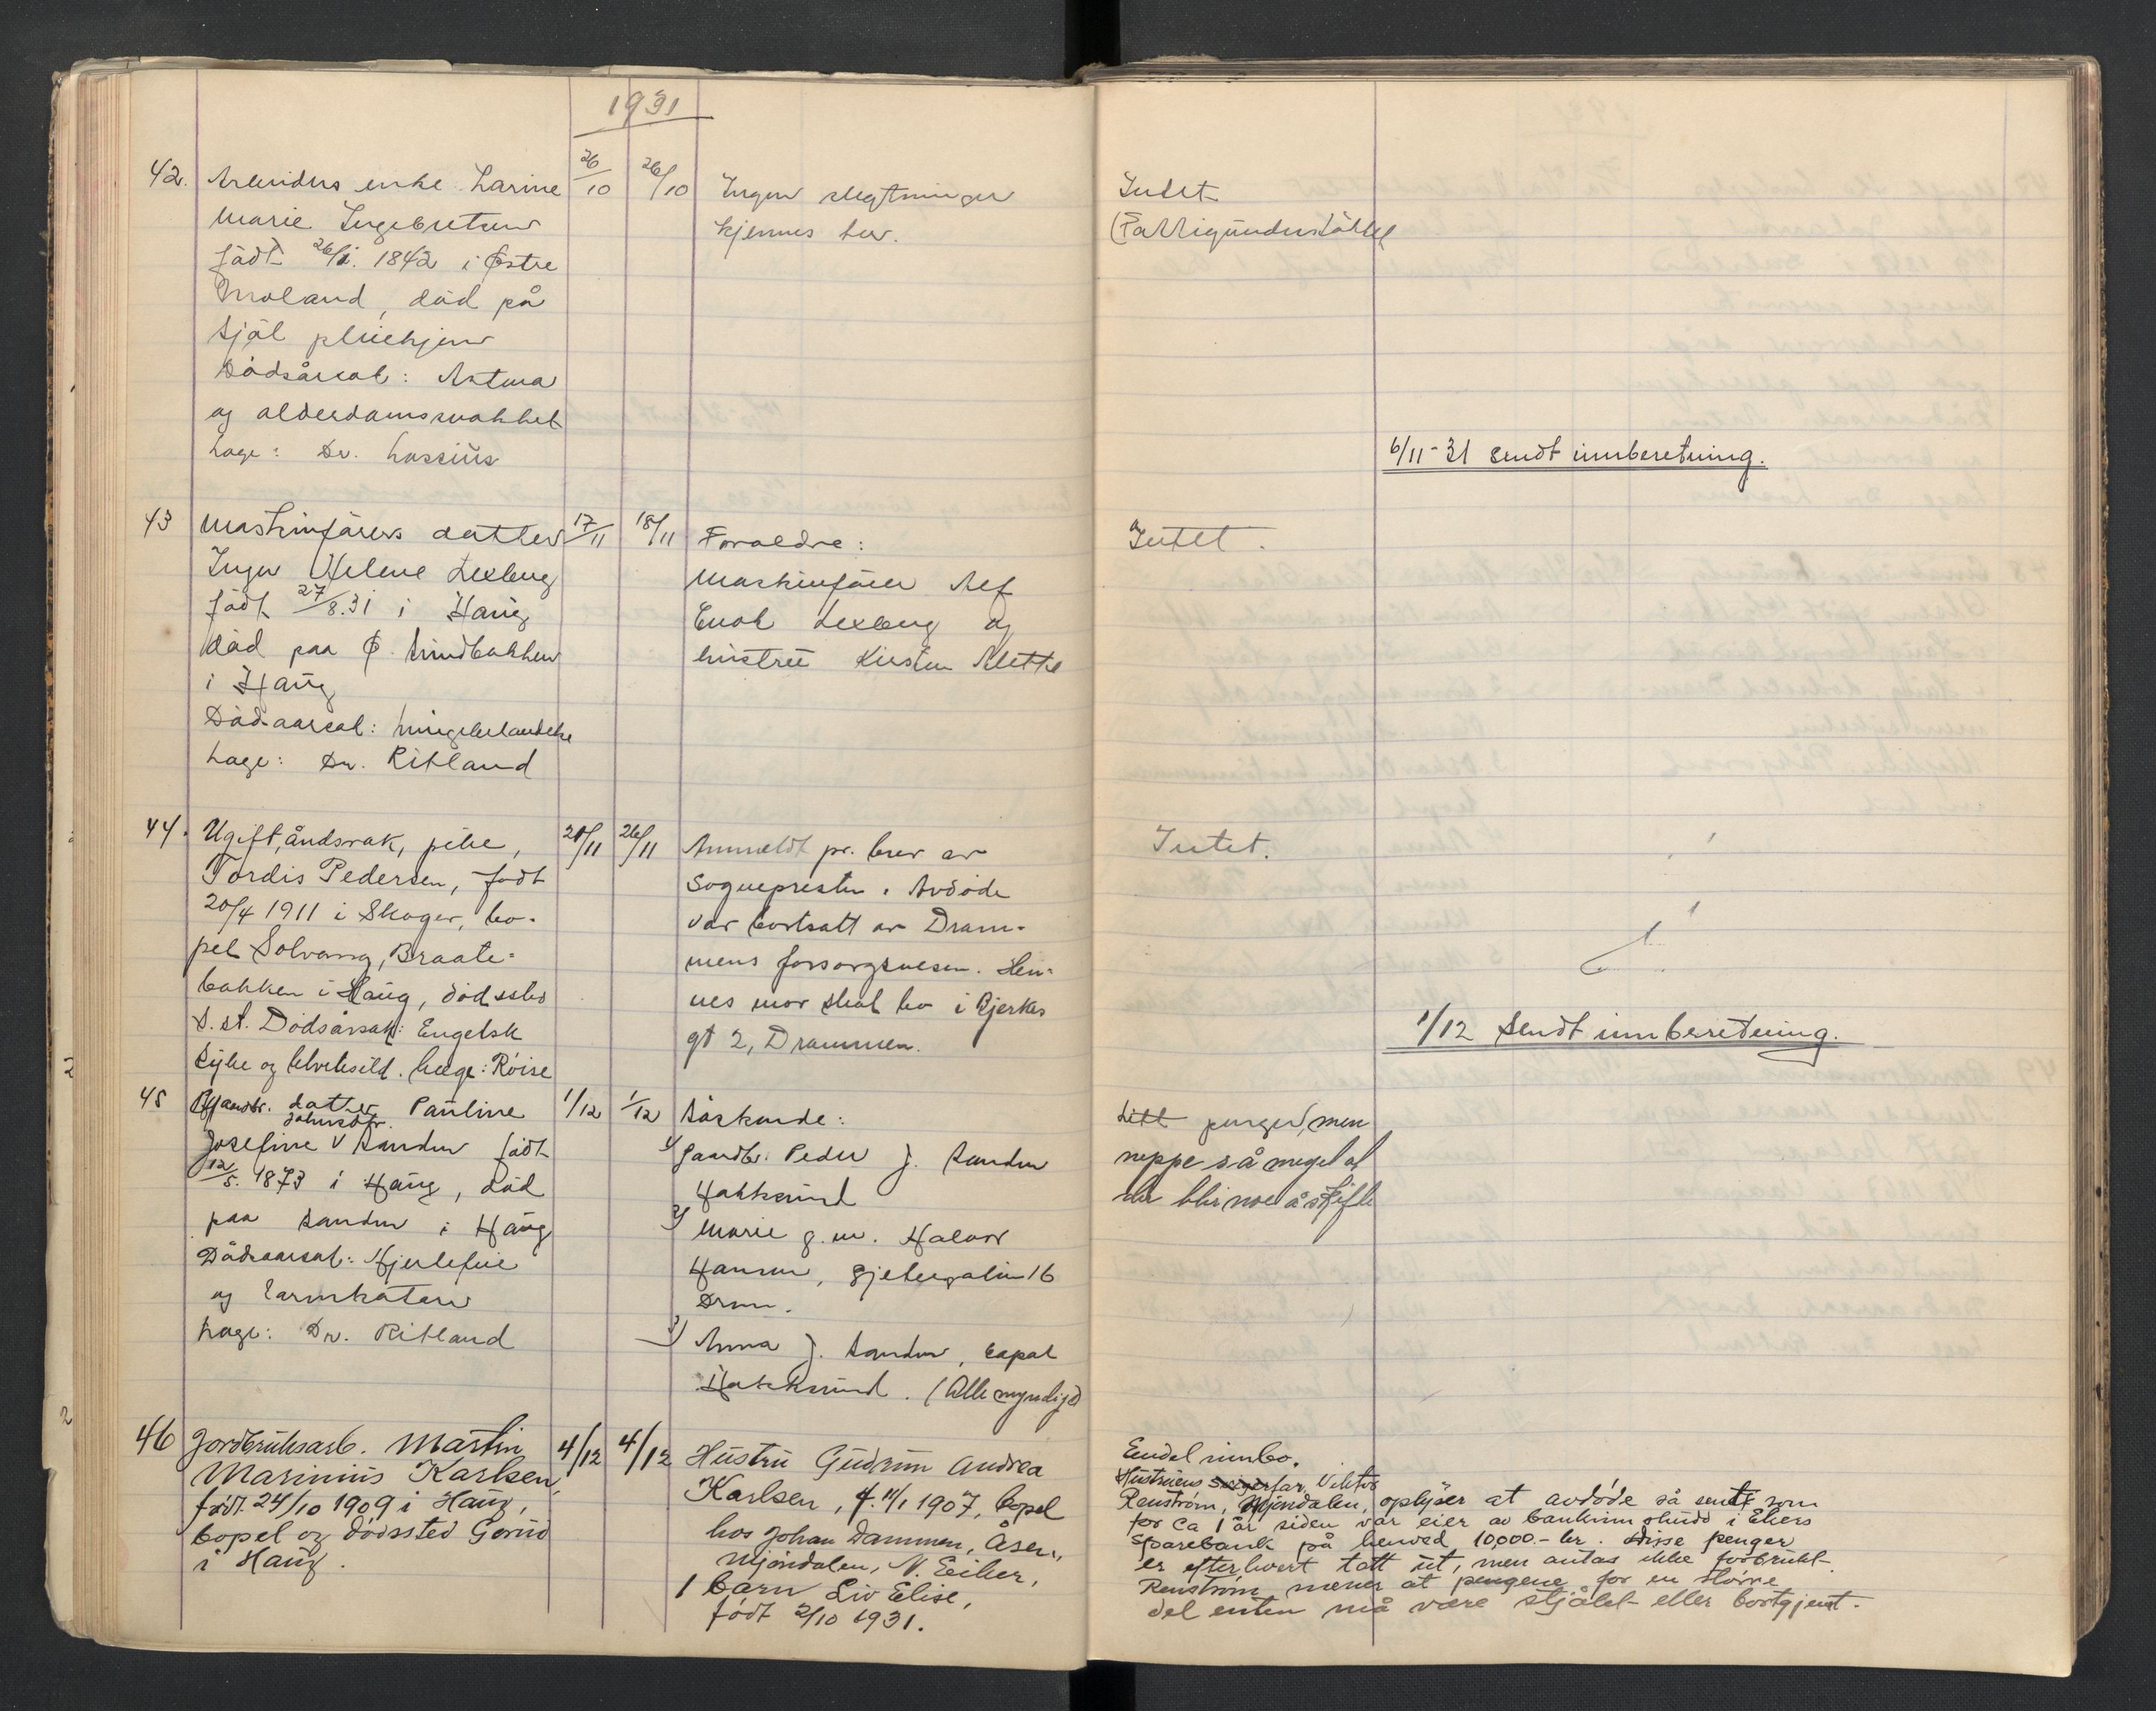 1931
42.
Arbeiders enke Larine
Marie Ingebretsen
födt 26/1. 1842 i Østre
Moland, död på
Sjöl pleiehjem
Dödsårsak: Astma
og alderdomssvakhet
Læge: Dr. Lassius
26/10
26/10
Ingen slegtninger
kjennes her.
Intet
(Fattigunderstöttet
6/11-31 sendt innberetning.
43
Maskinförers datter
Inger Helene Lexberg
födt 27/8.31 i Haug
död paa Ø. Sundbakken
i Haug
Dödsaarsak: Lungebetændelse
Læge: Dr. Ritland
17/11
18/11
Foreldre:
Maskinförer Alf
Enok Lexberg og
hustru Kirsten Alette
Intet.
44.
Ugift, åndsvak, pike,
Tordis Pedersen, født
20/4 1911 i Skoger, bo-
pel Solvang, Braate-
bakken i Haug, dødssted
s. st. Dødsårsak: Engelsk
syke og helvetesild. Læge: Röise
20/11
26/11
Anmeldt pr. brev av
Sognepresten. Avdøde
var bortsatt av Dram-
mens forsorgsvesen. Hen-
nes mor skal bo i Bjerkes
gt 2, Drammen.
Intet.
1/12 Sendt innberetning.
45
Gaardbr. datter Pauline
Johnsdtr.
Josefine V Sanden födt
12/5. 1873 i Haug, död
paa Sanden i Haug
Dödsaarsak: Hjertefeil
og Tarmkatarr
Læge: Dr. Ritland
1/12
1/12
Söskende:
1) Gaardbr. Peder J. Sanden
Hokksund
2) Marie g.m. Halvor
Hansen, Gjetergaten 16
Drm.
3) Anna J. Sanden, bopæl
Hokksund. (Alle myndige)
Litt penger, men
neppe så meget at
der blir noe å skifte
46
Jordbruksarb. Martin
Marinius Karlsen,
født 24/10 1909 i Haug,
bopel og dødssted Gorud
i Haug.
4/12
4/12
Hustru Gudrun Andrea
Karlsen, f. 11/1 1907, bopel
hos Johan Dammen, Åsen,
Mjøndalen, N. Eiker,
1 barn Liv Elise,
født 2/10 1931.
Endel innbo.
Hustruens far, Viktor
Renström, Mjøndalen, oplyser at avdøde så sent som
for ca 1 år siden var eier av bankinnskudd i Ekers
Sparebank på henved 10,000.- kr. Disse penger
er efterhvert tatt ut, men antas ikke forbrukt.
Renström mener at pengene for en större
del enten må være stjålet eller bortgjemt.